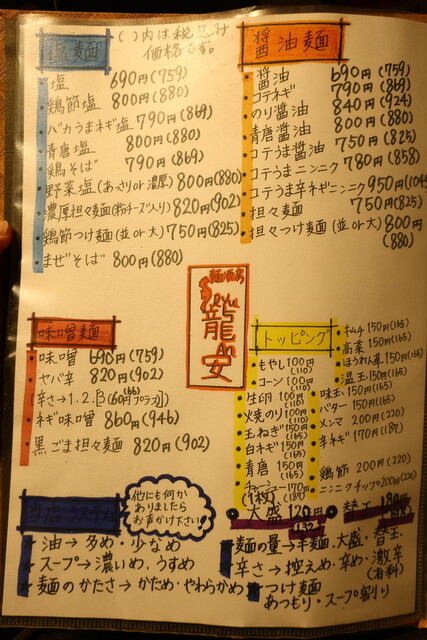 塩麺
( )内は税込み
価格です。
塩 690円(759)
鶏節塩 800円(880)
バカうまネギ塩 790円(869)
青唐塩 800円(880)
鶏そば 790円(869)
野菜塩(あっさりor濃厚) 800円(880)
濃厚担々麺(粉チーズ入り) 820円(902)
鶏節つけ麺(並or大) 750円(825)
まぜそば 800円(880)
醤油麺
醤油 690円(759)
コテネギ 790円(869)
のり醤油 840円(924)
青唐醤油 800円(880)
コテうま醤油 750円(825)
コテうまニンニク 780円(858)
コテうま辛ネギニンニク 950円(1045)
担々麺 750円(825)
担々つけ麺(並or大) 800円
(880)
麺酒房
Ryu
龍
An
安
味噌麺
味噌 690円(759)
ヤバ辛 820円(902)
辛さ→1.2.3(60円プラス)
(66)
ネギ味噌 860円(946)
黒ごま担々麺 820円(902)
トッピング
もやし 100円
(110)
コーン 100円
(110)
生卵 100円
(110)
焼のり 100円
(110)
玉ねぎ 150円
(165)
白ネギ 150円
(165)
青唐 150円
(165)
チャーシュー 170円
(1枚) (187)
キムチ 150円(165)
高菜 150円(165)
ほうれん草 150円(165)
温玉 150円(165)
味玉 150円(165)
バター 150円(165)
メンマ 200円(220)
辛ネギ 170円(187)
鶏節 200円(220)
ニンニクチップ 200円(220)
大盛 120円
(132)
替玉 180円
当店システム
他にも何か
ありましたら
お声かけ下さい!
油→多め・少なめ
スープ→濃いめ、うすめ
麺のかたさ→かため・やわらかめ
麺の量→半麺、大盛・替玉
辛さ→控えめ・辛め・激辛
(有料)
つけ麺
あつもり・スープ割り